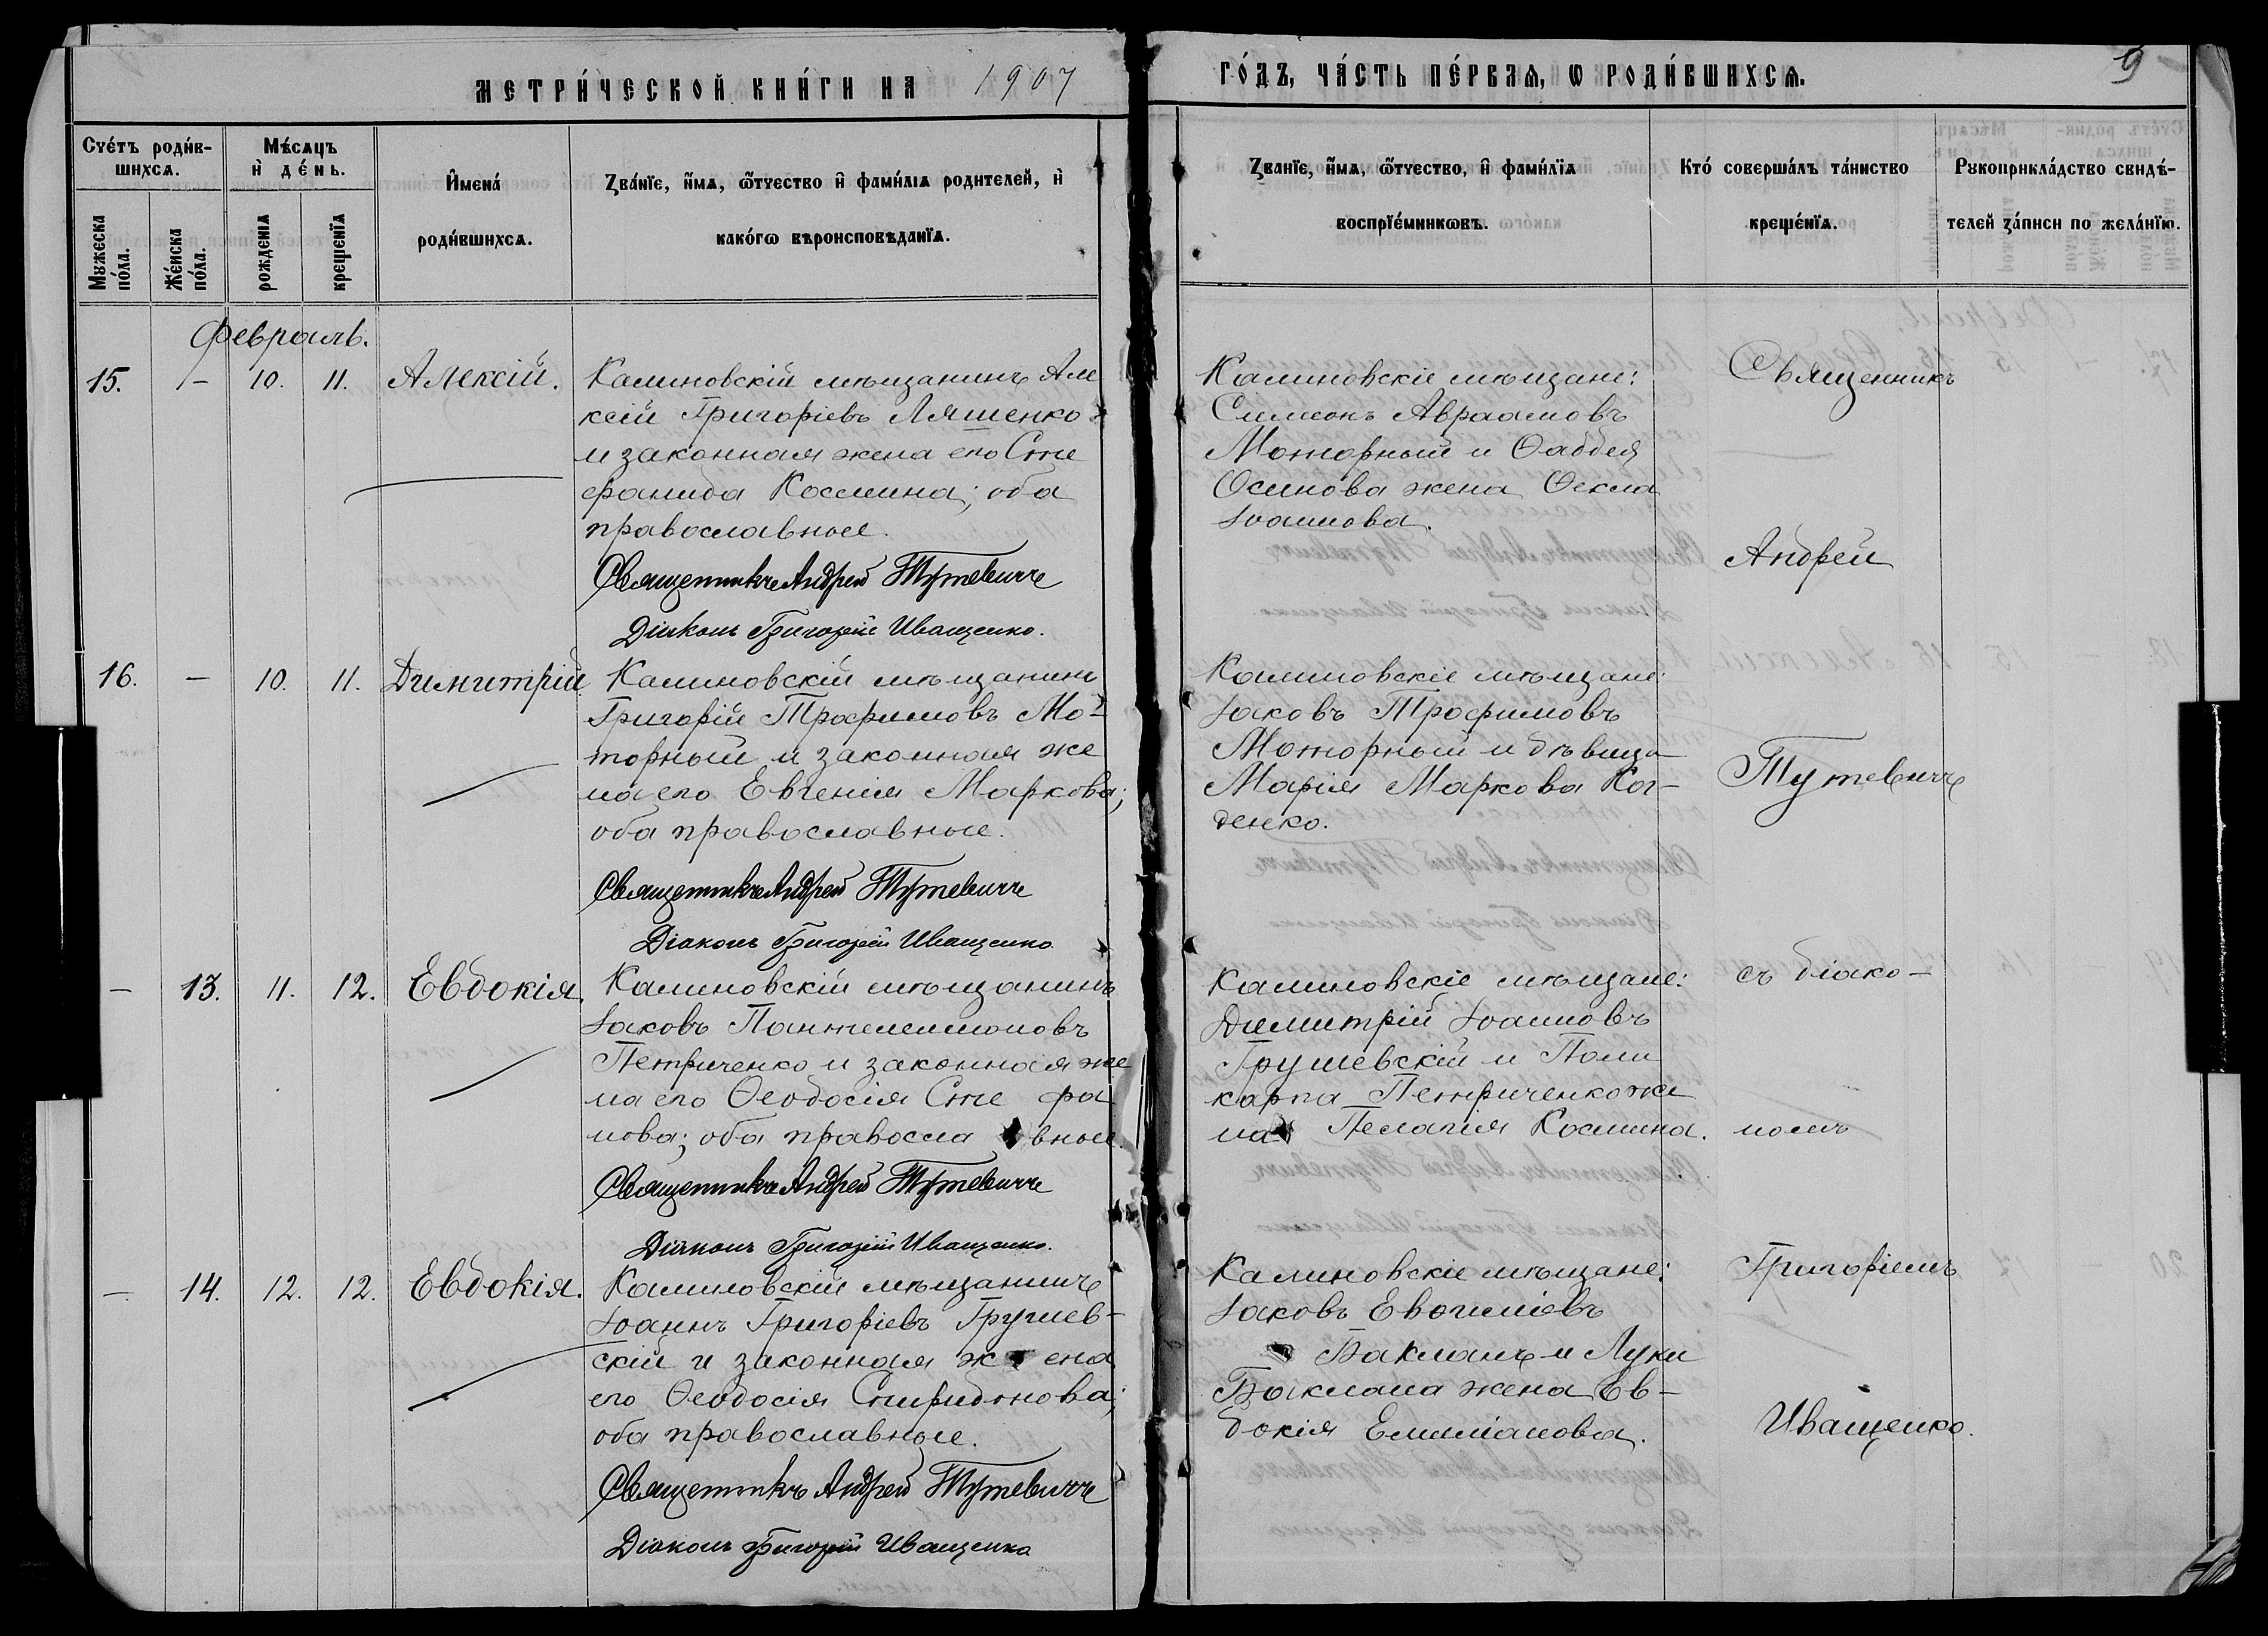 МЕТРИ́ЧЕСКОЙ КНИ́ГИ НА 1907 ГО́ДЪ, ЧА́СТЬ ПЕ́РВАѦ, Ѡ РОДИ́ВШИХСѦ.
9
Сче́тъ роди́в-
шихсѧ.
Мꙋжеска по́ла.
Же́нска по́ла.
Мѣ́сѧцъ
и҆ де́нь.
рожденїѧ
крещенїѧ
И҆мена́
роди́вшихсѧ.
Зва́нїе, и҆́мѧ, ѻ҆́тчество и҆ фами́лїѧ родителей, и҆
како́гѡ вѣроисповѣданїѧ.
Званїе, и҆́мѧ, ѻ҆́тчество, и҆ фами́лїѧ
воспрїе́мникѡвъ.
Кто́ соверша́лъ та́инство
креще́нїѧ.
Рꙋкоприкла́дство свидѣ́-
телей за́писи по жела́нїю.
Февраль.
15. — 10. 11. Алексій.
Калиновскій мѣщанинъ Але
ксій Григоріевъ Ляшенко
и законная жена его Сте
фанида Космина; оба
православные.
Священникъ Андрей Тутевичъ
Діаконъ Григорій Иващенко.
Калиновскіе мѣщане:
Симеонъ Авраамовъ
Моторный и Ѳаддея
Осипова жена Ѳекла
Іоаннова.
16. — 10. 11. Димитрій
Калиновскій мѣщанинъ
Григорій Трофимовъ Мо-
торный и законная же
на его Евгенія Маркова;
оба православные.
Священникъ Андрей Тутевичъ
Діаконъ Григорій Иващенко
Калиновскіе мѣщане:
Іаковъ Трофимовъ
Моторный и дѣвица
Марія Маркова
денко.
— 13. 11. 12. Евдокія.
Калиновскій мѣщанинъ
Іаковъ Пантелеимоновъ
Петриченко и законная же
на его Ѳеодосія Сте фа
нова; оба правосла вные.
Священникъ Андрей Тутевичъ
Діаконъ Григорій Иващенко.
Калиновскіе мѣщане:
Димитрій Іоанновъ
Грушевскій и Поли
карпа Петриченко же
на Пелагія Космина.
— 14. 12. 12. Евдокія.
Калиновскій мѣщанинъ
Іоаннъ Григоріевъ Грушев-
скій и законная ж ена
его Ѳеодосія Спиридонова;
оба православные.
Священникъ Андрей Тутевичъ
Діаконъ Григорій Иващенко
Калиновскіе мѣщане:
Іаковъ Евѳиміевъ
Бакланъ и Луки
Баклана жена Ев-
докія Емиліанова.
Священникъ
Андрей
Тутевичъ
съ діако-
номъ
Григоріемъ
Иващенко.